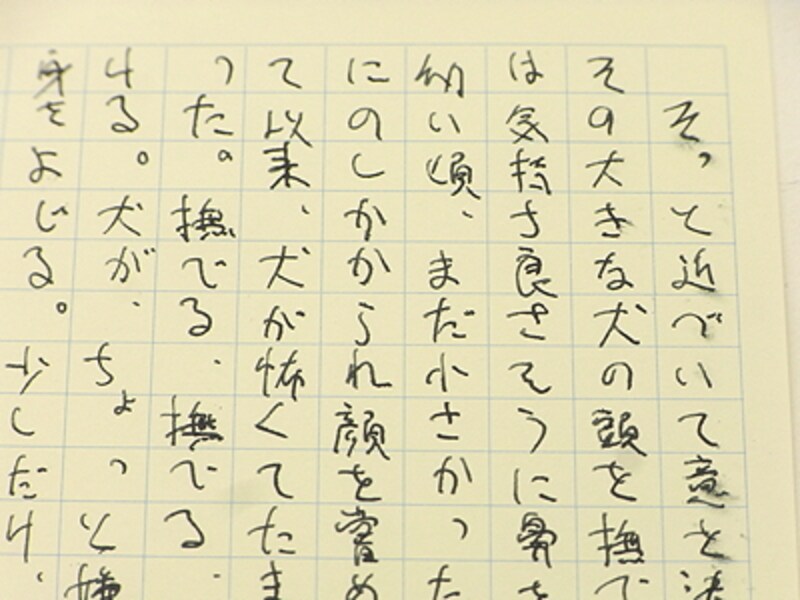 そっと近づいて意を決
その大きな犬の頭を撫で
は気持ち良さそうに鼻を
幼い頃、まだ小さかった
にのしかかられ顔を嘗め
て以来、犬が怖くてたま
った。撫でる、撫でる、
ける。犬が、ちょっと嫌
身をよじる。少しだけ、